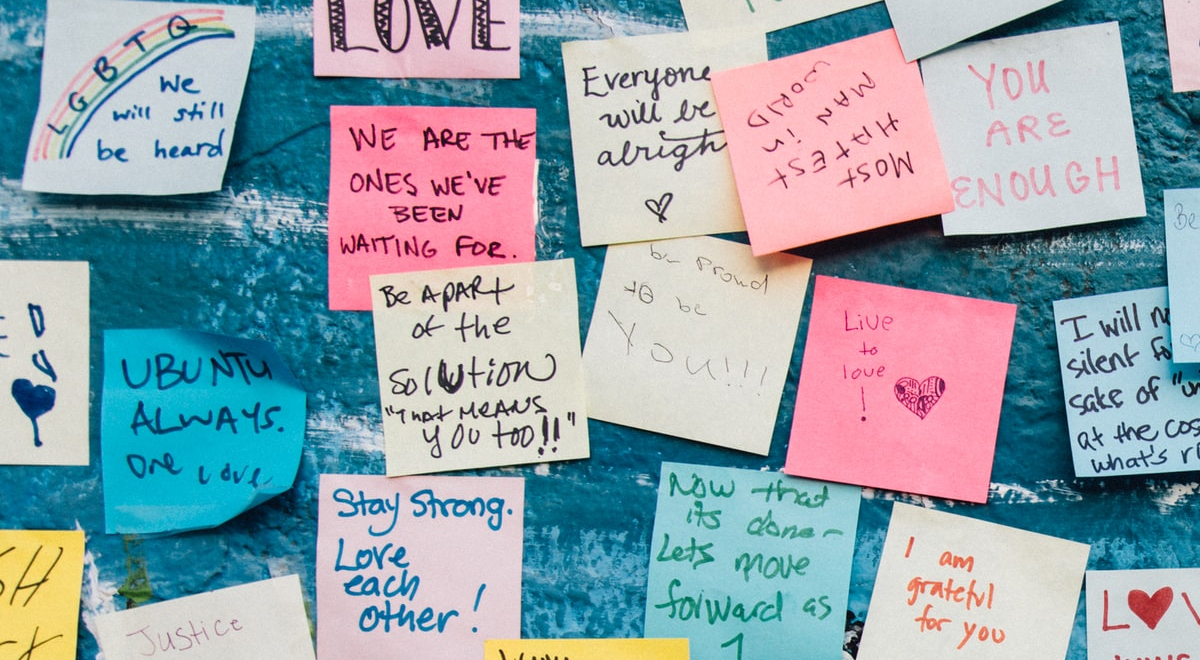 L G B T Q
We
will still
be heard
LOVE
WE ARE THE
ONES WE'VE
BEEN
WAITING FOR.
Everyone
will be
alrigh
MOST
HATEST
MAN in
WORLD
YOU
ARE
ENOUGH
Be
UBUNTU
ALWAYS.
one Love
Be APArt
of the
SOlUtion
"THAT MEANS
YOU too!!"
be proud
to be
You!!!
Live
to
love
!
I will n
silent fo
sake of "un
at the cos
what's ri
Stay Strong.
Love
each
other!
Now that
its done-
Lets move
forward as
1
I am
grateful
for you
Justice
SH
LOV